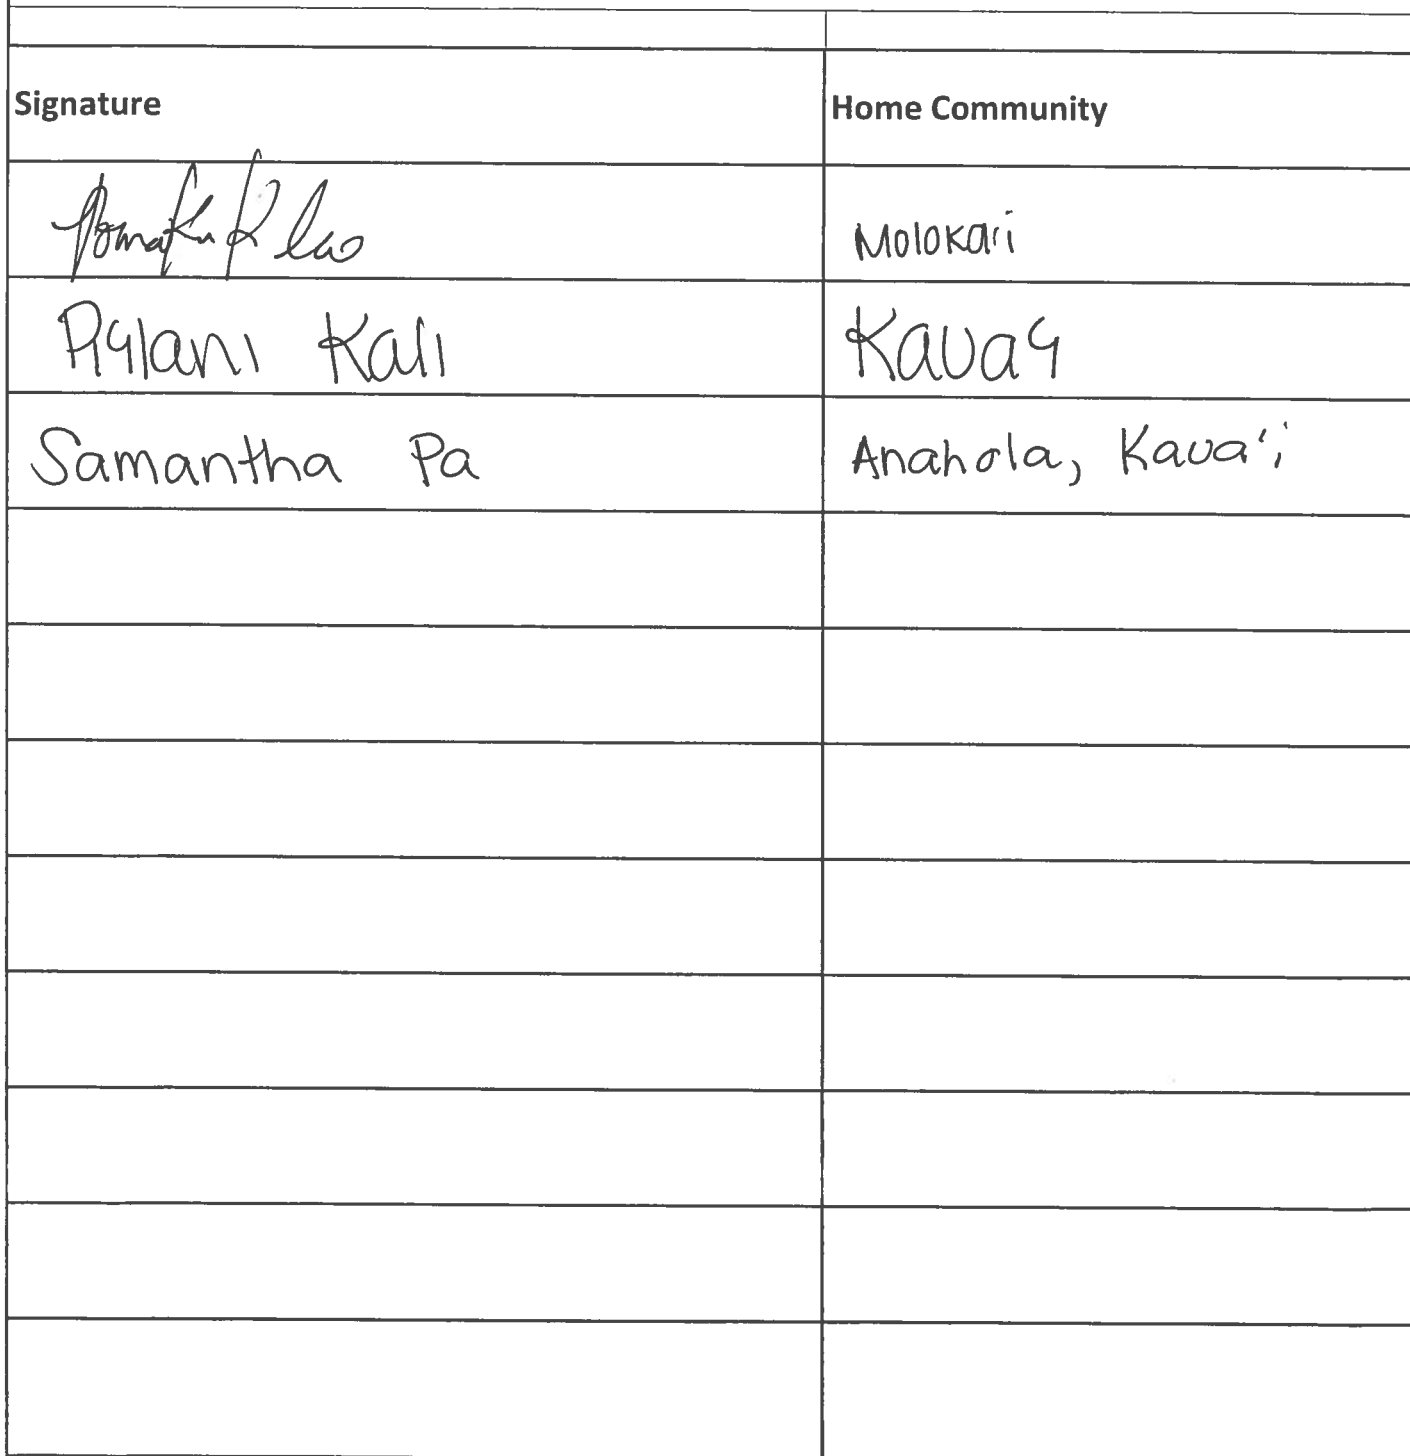 Signature Home Community
Molokaʻi
Kauai
Samantha Pa Anahola, Kauaʻi